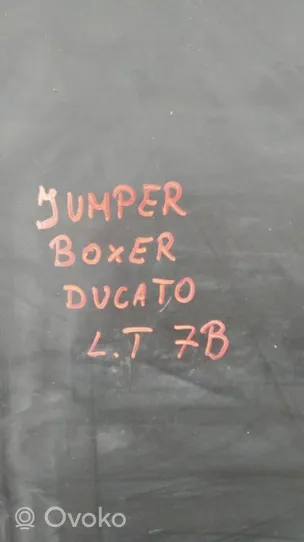 JUMPER
BOXER
DUCATO
L.T 7B
Ovoko